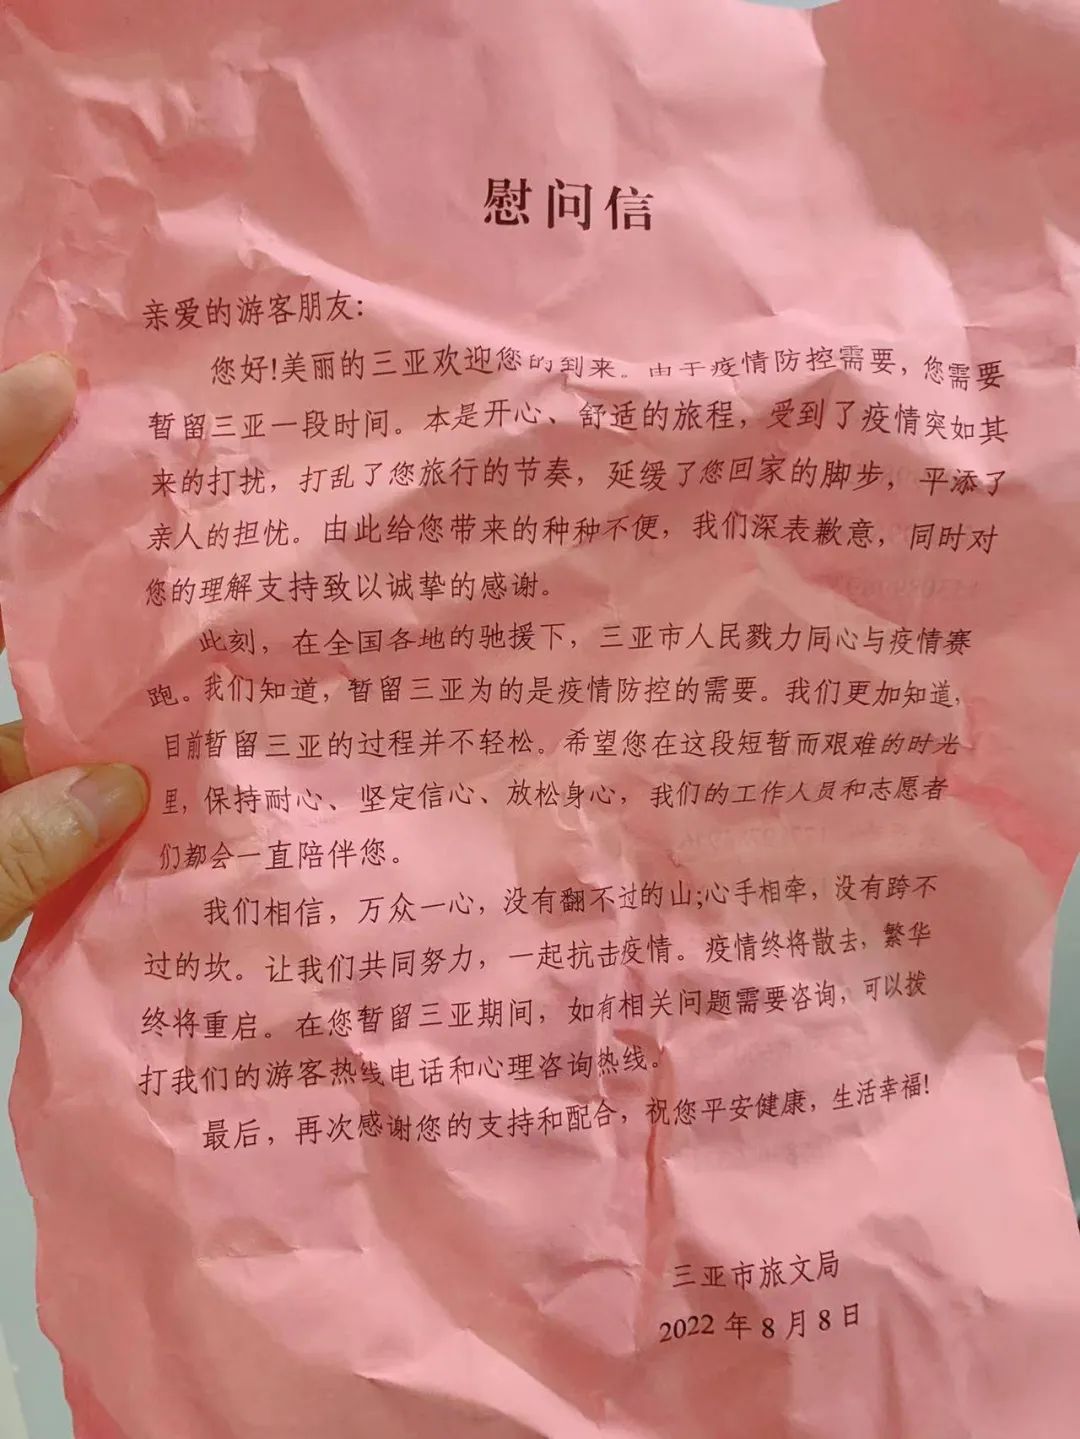 慰问信
亲爱的游客朋友：
您好!美丽的三亚欢迎您的到来。由于疫情防控需要，您需要
暂留三亚一段时间。本是开心、舒适的旅程，受到了疫情突如其
来的打扰，打乱了您旅行的节奏，延缓了您回家的脚步，平添了
亲人的担忧。由此给您带来的种种不便，我们深表歉意，同时对
您的理解支持致以诚挚的感谢。
此刻，在全国各地的驰援下，三亚市人民戮力同心与疫情赛
跑。我们知道，暂留三亚为的是疫情防控的需要。我们更加知道，
目前暂留三亚的过程并不轻松。希望您在这段短暂而艰难的时光
里，保持耐心、坚定信心、放松身心，我们的工作人员和志愿者
们都会一直陪伴您。
我们相信，万众一心，没有翻不过的山;心手相牵，没有跨不
过的坎。让我们共同努力，一起抗击疫情。疫情终将散去，繁华
终将重启。在您暂留三亚期间，如有相关问题需要咨询，可以拨
打我们的游客热线电话和心理咨询热线。
最后，再次感谢您的支持和配合，祝您平安健康，生活幸福!
三亚市旅文局
2022 年 8 月 8 日